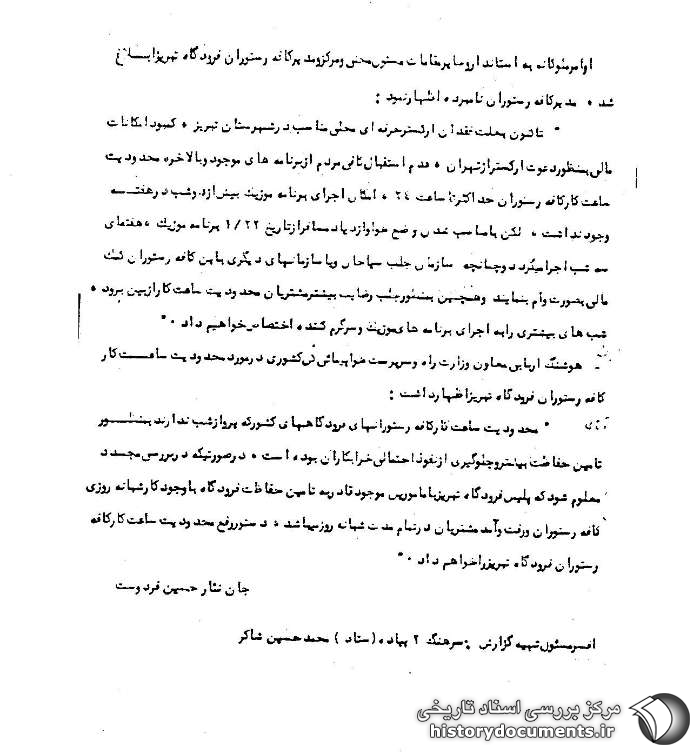 اوامر ملوکانه به استاندار و سایر مقامات مسئول محلی و مرکز و مدیر کافه رستوران فرودگاه تبریز ابلاغ
شد ، مدیر کافه رستوران نامبرده اظهار نمود :
" تاکنون بعلت فقدان ارکستر حرفه ای محلی مناسب در شهرستان تبریز ، کمبود امکانات
مالی بمنظور دعوت ارکستر از تهران ، عدم استقبال کافی مردم از برنامه های موجود و بالاخره محدودیت
ساعت کار کافه رستوران حداکثر تا ساعت ۲۴ ، امکان اجرای برنامه موزیک بیش از دو شب در هفته
وجود نداشت ، لکن با مناسب شدن وضع هوا و ازدیاد مسافر از تاریخ ۱/۲۲ برنامه موزیک ، هفته‌ای
سه شب اجرا میگردد و چنانچه سازمان جلب سیاحان و یا سازمانهای دیگری باین کافه رستوران کمک
مالی بصورت وام بنمایند و همچنین بمنظور جلب رضایت بیشتر مشتریان محدودیت ساعت کار از بین برود ،
شب های بیشتری را به اجرای برنامه های موزیک و سرگرم کننده اختصاص خواهیم داد . "
هوشنگ اربابی معاون وزارت راه و سرپرست هواپیمائی کل کشوری در مورد محدودیت ساعت کار
کافه رستوران فرودگاه تبریز اظهار داشت :
" محدودیت ساعت کار کافه رستورانهای فرودگاههای کشور که پرواز شب ندارند بمنظور
تامین حفاظت بیشتر و جلوگیری از نفوذ احتمالی خرابکاران بوده است ، در صورتیکه در بررسی مجدد
معلوم شود که پلیس فرودگاه تبریز با مامورین موجود قادر به تامین حفاظت فرودگاه با وجود کار شبانه روزی
کافه رستوران و رفت و آمد مشتریان در تمام مدت شبانه روز میباشد ، دستور رفع محدودیت ساعت کار کافه
رستوران فرودگاه تبریز را خواهم داد . "
جان نثار حسین فردوست
افسر مسئول تهیه گزارش : سرهنگ ۲ پیاده ( ستاد ) محمد حسین شاکر
مرکز بررسی اسناد تاریخی
historydocuments.ir